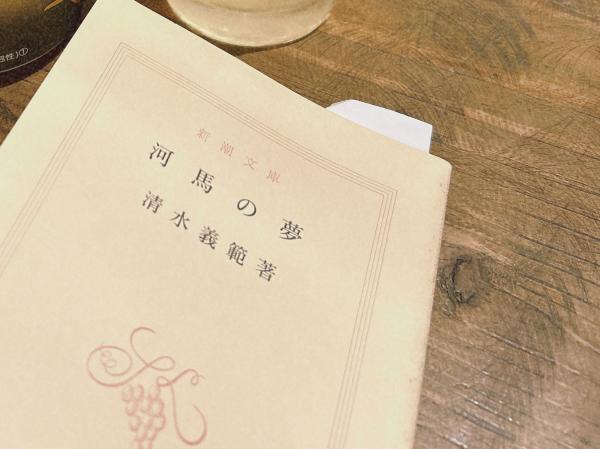 新潮文庫
河馬の夢
清水義範著